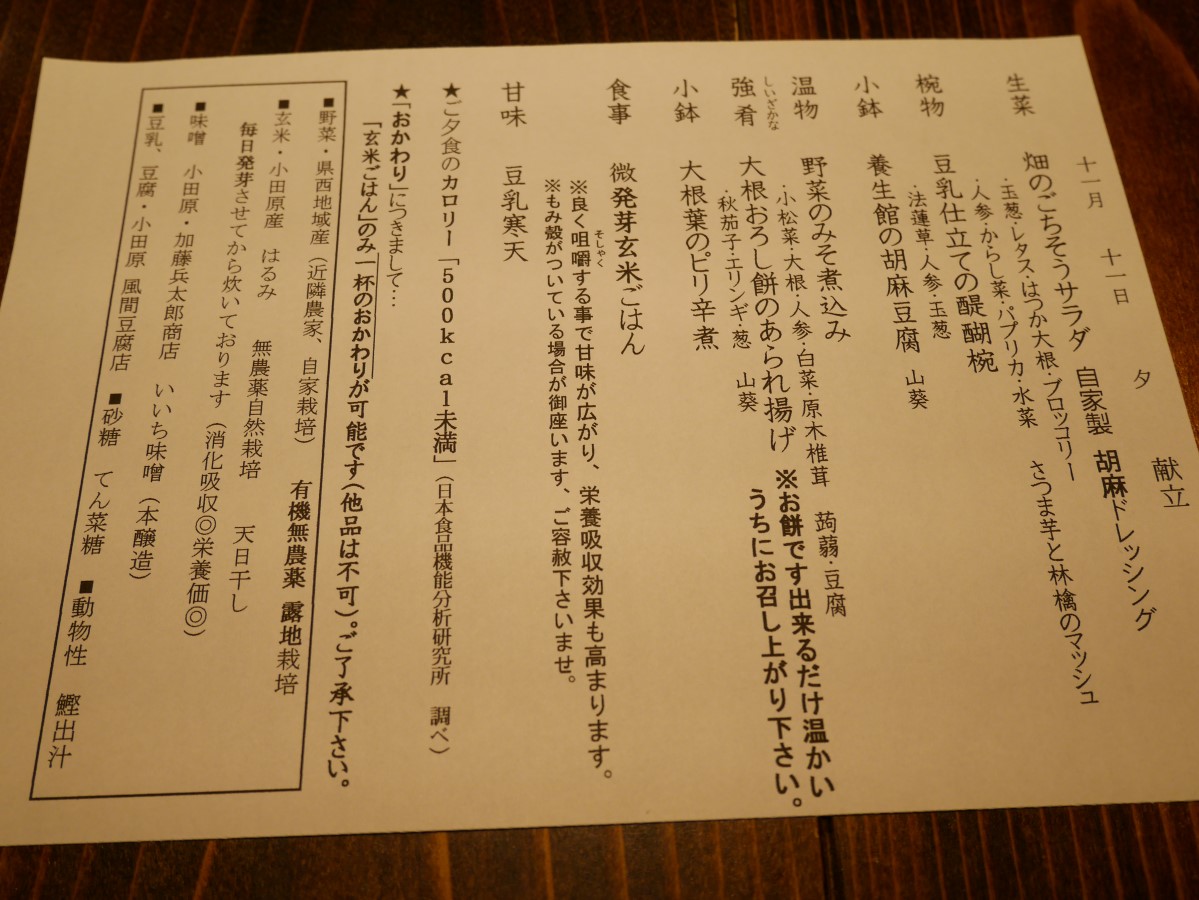 十一月　十一日　　夕　献立
生菜　畑のごちそうサラダ　自家製　胡麻ドレッシング
・玉葱・レタス・はつか大根・ブロッコリー　さつま芋と林檎のマッシュ
・人参・からし菜・パプリカ・水菜
椀物　豆乳仕立ての醍醐椀
・法蓮草・人参・玉葱
小鉢　養生館の胡麻豆腐　山葵
温物　野菜のみそ煮込み
・小松菜・大根・人参・白菜・原木椎茸　蒟蒻・豆腐
しいざかな
強肴　大根おろし餅のあられ揚げ　※お餅です出来るだけ温かい
うちにお召し上がり下さい。
・秋茄子・エリンギ・葱　山葵
小鉢　大根葉のピリ辛煮
食事　微発芽玄米ごはん
そしゃく
※良く咀嚼する事で甘味が広がり、栄養吸収効果も高まります。
※もみ殻がついている場合が御座います、ご容赦下さいませ。
甘味　豆乳寒天
★ご夕食のカロリー「５００ｋｃａｌ未満」（日本食品機能分析研究所　調べ）
★「おかわり」につきまして…
「玄米ごはん」のみ一杯のおかわりが可能です（他品は不可）。ご了承下さい。
■野菜・県西地域産（近隣農家、自家栽培）　有機無農薬　露地栽培
■玄米・小田原産　はるみ　無農薬自然栽培　天日干し
毎日発芽させてから炊いております（消化吸収◎栄養価◎）
■味噌　小田原・加藤兵太郎商店　いいち味噌（本醸造）
■豆乳、豆腐・小田原　風間豆腐店　■砂糖　てん菜糖　■動物性　鰹出汁